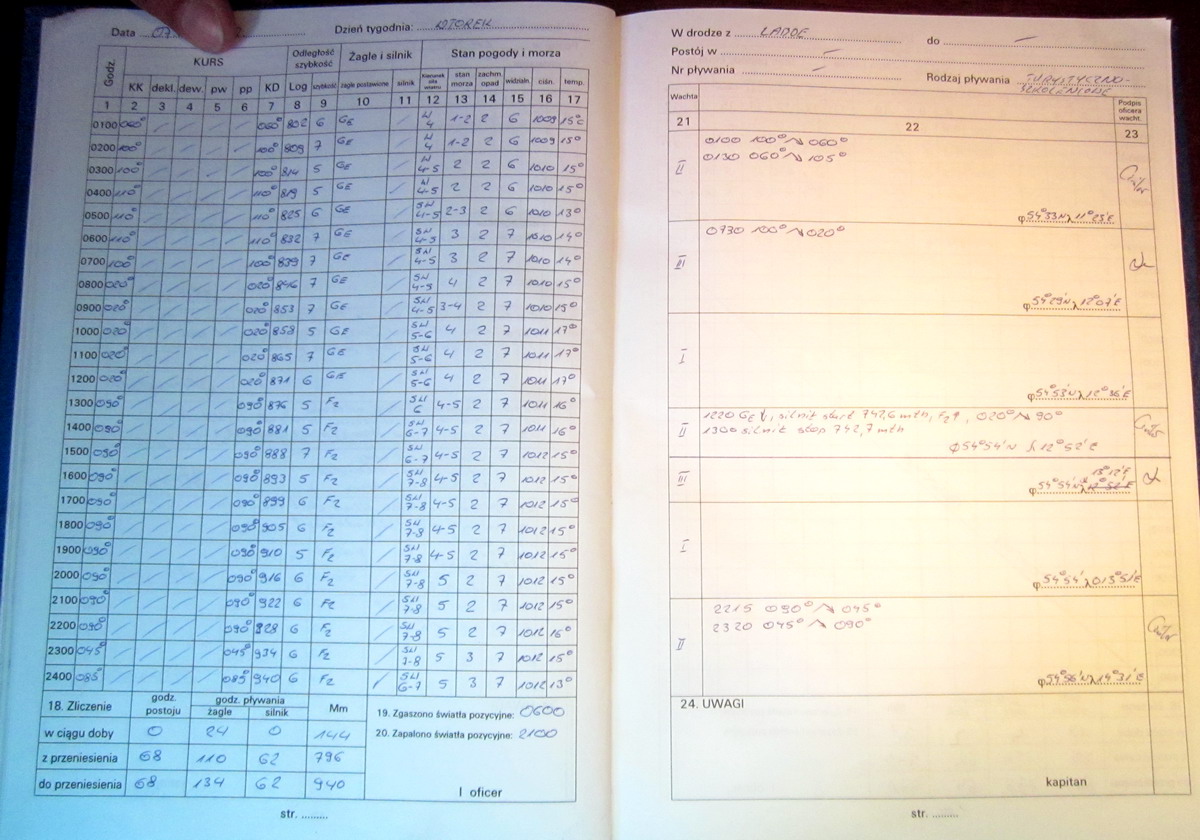 Data 07 2.
Dzień tygodnia: WTOREK
Godz. KURS Odległość szybkość Żagle i silnik Stan pogody i morza
KK dekl. dew. pw pp KD Log szybkość żagle postawione silnik Kierunek siła wiatru stan morza zachm. opad widzialn. ciśn. temp.
1 2 3 4 5 6 7 8 9 10 11 12 13 14 15 16 17
0100 060° / / / / 060° 802 6 GE / W 4 1-2 2 6 1009 15°C
0200 100° / / / / 100° 809 7 GE / W 4 1-2 2 6 1009 15°
0300 100° / / / / 100° 814 5 GE / W 4-5 2 2 6 1010 15°
0400 110° / / / / 110° 819 5 GE / W 4-5 2 2 6 1010 15°
0500 110° / / / / 110° 825 6 GE / SW 4-5 2-3 2 6 1010 13°
0600 110° / / / / 110° 832 7 GE / SW 4-5 3 2 7 1010 14°
0700 100° / / / / 100° 839 7 GE / SW 4-5 3 2 7 1010 14°
0800 020° / / / / 020° 846 7 GE / SW 4-5 4 2 7 1010 15°
0900 020° / / / / 020° 853 7 GE / SW 4-5 3-4 2 7 1010 15°
1000 020° / / / / 020° 858 5 GE / SW 5-6 4 2 7 1011 17°
1100 020° / / / / 020° 865 7 GE / SW 5-6 4 2 7 1011 17°
1200 020° / / / / 020° 871 6 GE / SW 5-6 4 2 7 1011 17°
1300 090° / / / / 090° 876 5 F2 / SW 6 4-5 2 7 1011 16°
1400 090° / / / / 090° 881 5 F2 / SW 6-7 4-5 2 7 1011 16°
1500 090° / / / / 090° 888 7 F2 / SW 6-7 4-5 2 7 1012 15°
1600 090° / / / / 090° 893 5 F2 / SW 7-8 4-5 2 7 1012 15°
1700 090° / / / / 090° 899 6 F2 / SW 7-8 4-5 2 7 1012 15°
1800 090° / / / / 090° 905 6 F2 / SW 7-8 4-5 2 7 1012 15°
1900 090° / / / / 090° 910 5 F2 / SW 7-8 4-5 2 7 1012 15°
2000 090° / / / / 090° 916 6 F2 / SW 7-8 5 2 7 1012 15°
2100 090° / / / / 090° 922 6 F2 / SW 7-8 5 2 7 1012 15°
2200 090° / / / / 090° 928 6 F2 / SW 7-8 5 2 7 1012 16°
2300 045° / / / / 045° 934 6 F2 / SW 7-8 5 3 7 1012 15°
2400 085° / / / / 085° 940 6 F2 / SW 6-7 5 3 7 1012 13°
18. Zliczenie godz. postoju godz. pływania żagle silnik Mm
w ciągu doby 0 24 0 144
z przeniesienia 68 110 62 796
do przeniesienia 68 134 62 940
19. Zgaszono światła pozycyjne: 0600
20. Zapalono światła pozycyjne: 2100
I oficer
str. .........
W drodze z LABOE do —
Postój w —
Nr pływania — Rodzaj pływania TURYSTYCZNO-
SZKOLENIOWE
Wachta Podpis oficera wacht.
21 22 23
0100 100° ↘ 060°
II 0130 060° ↘ 105°
φ 54°33'N λ 11°23'E
0730 100° ↘ 020°
III
φ 54°29'N λ 12°07'E
I
φ 54°53'N λ 12°36'E
1220 GE↓, silnik start 742,6 mth, F2↑, 020° ↘ 90°
II 1300 silnik stop 742,7 mth
φ 54°54'N λ 12°52'E
13°12'E
III φ 54°54'N λ 12°52'E
I
φ 54°54' λ 013°51'E
2215 090° ↘ 045°
2320 045° ↘ 090°
II
φ 54°56'N λ 14°31'E
24. UWAGI
kapitan
str. .........